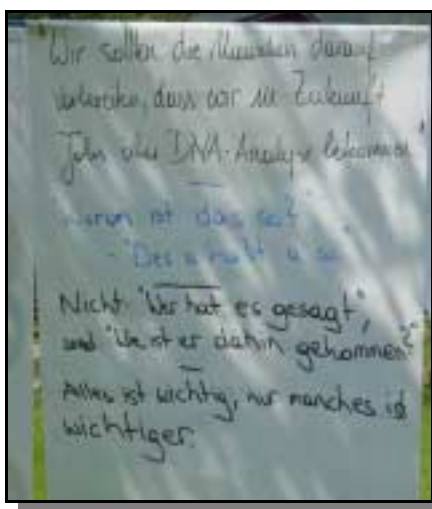 Wir sollten die Menschen darauf
vorbereiten, dass wir in Zukunft
Jobs über DNA-Analyse bekommen"
Warum ist das so?
- "Des is halt a so."
Nicht "Wer hat es gesagt",
und "Wie ist er dahin gekommen?"
Alles ist wichtig, nur manches ist
wichtiger.